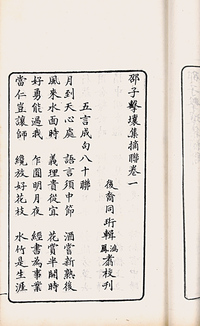 邵子擊壤集摘聯卷一
後裔同珩輯 鴻鳳耆校刊
五言成句八十聯
月到天心處 語言須中節 酒嘗新熟後
風來水面時 義理貴從宜 花賞半開時
好勇能過我 乍圓明月夜 經書為事業
當仁豈讓師 纔放好花枝 水竹是生涯